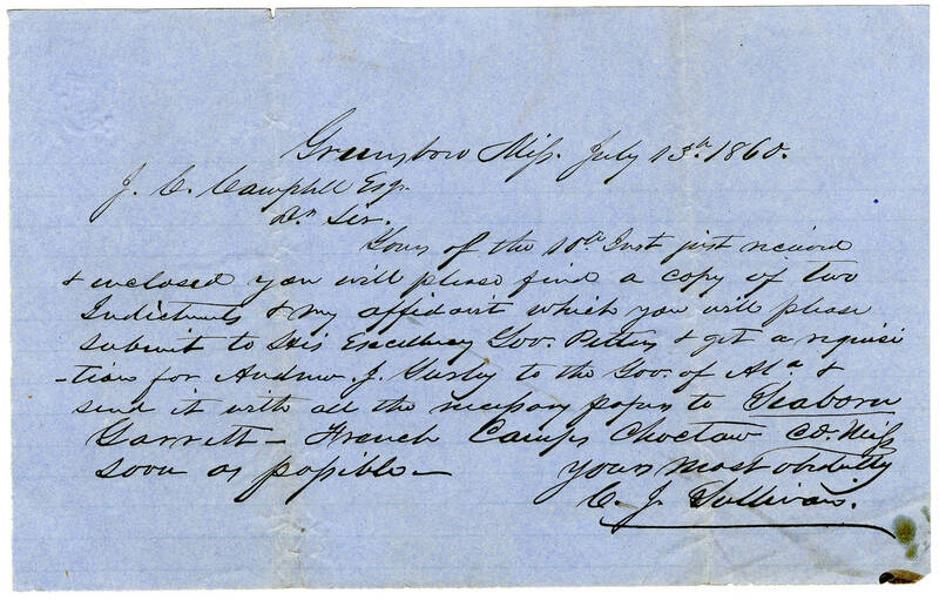 Greensboro Miss. July 13th. 1860.
J. C. Campbell Esq.
Dr. Sir.
Yours of the 10th Inst just received
& enclosed you will please find a copy of two
Indictments & my affidavit which you will please
submit to His Excellency Gov. Pettus & get a requisi
-tion for Andrew. J. to the Gov. of Ala &
send it with all the necessary papers to Seaborn
Garrett - French Camps Choctaw Co. Miss
soon as possible - Yours most obdtly
C. J. Sullivan.